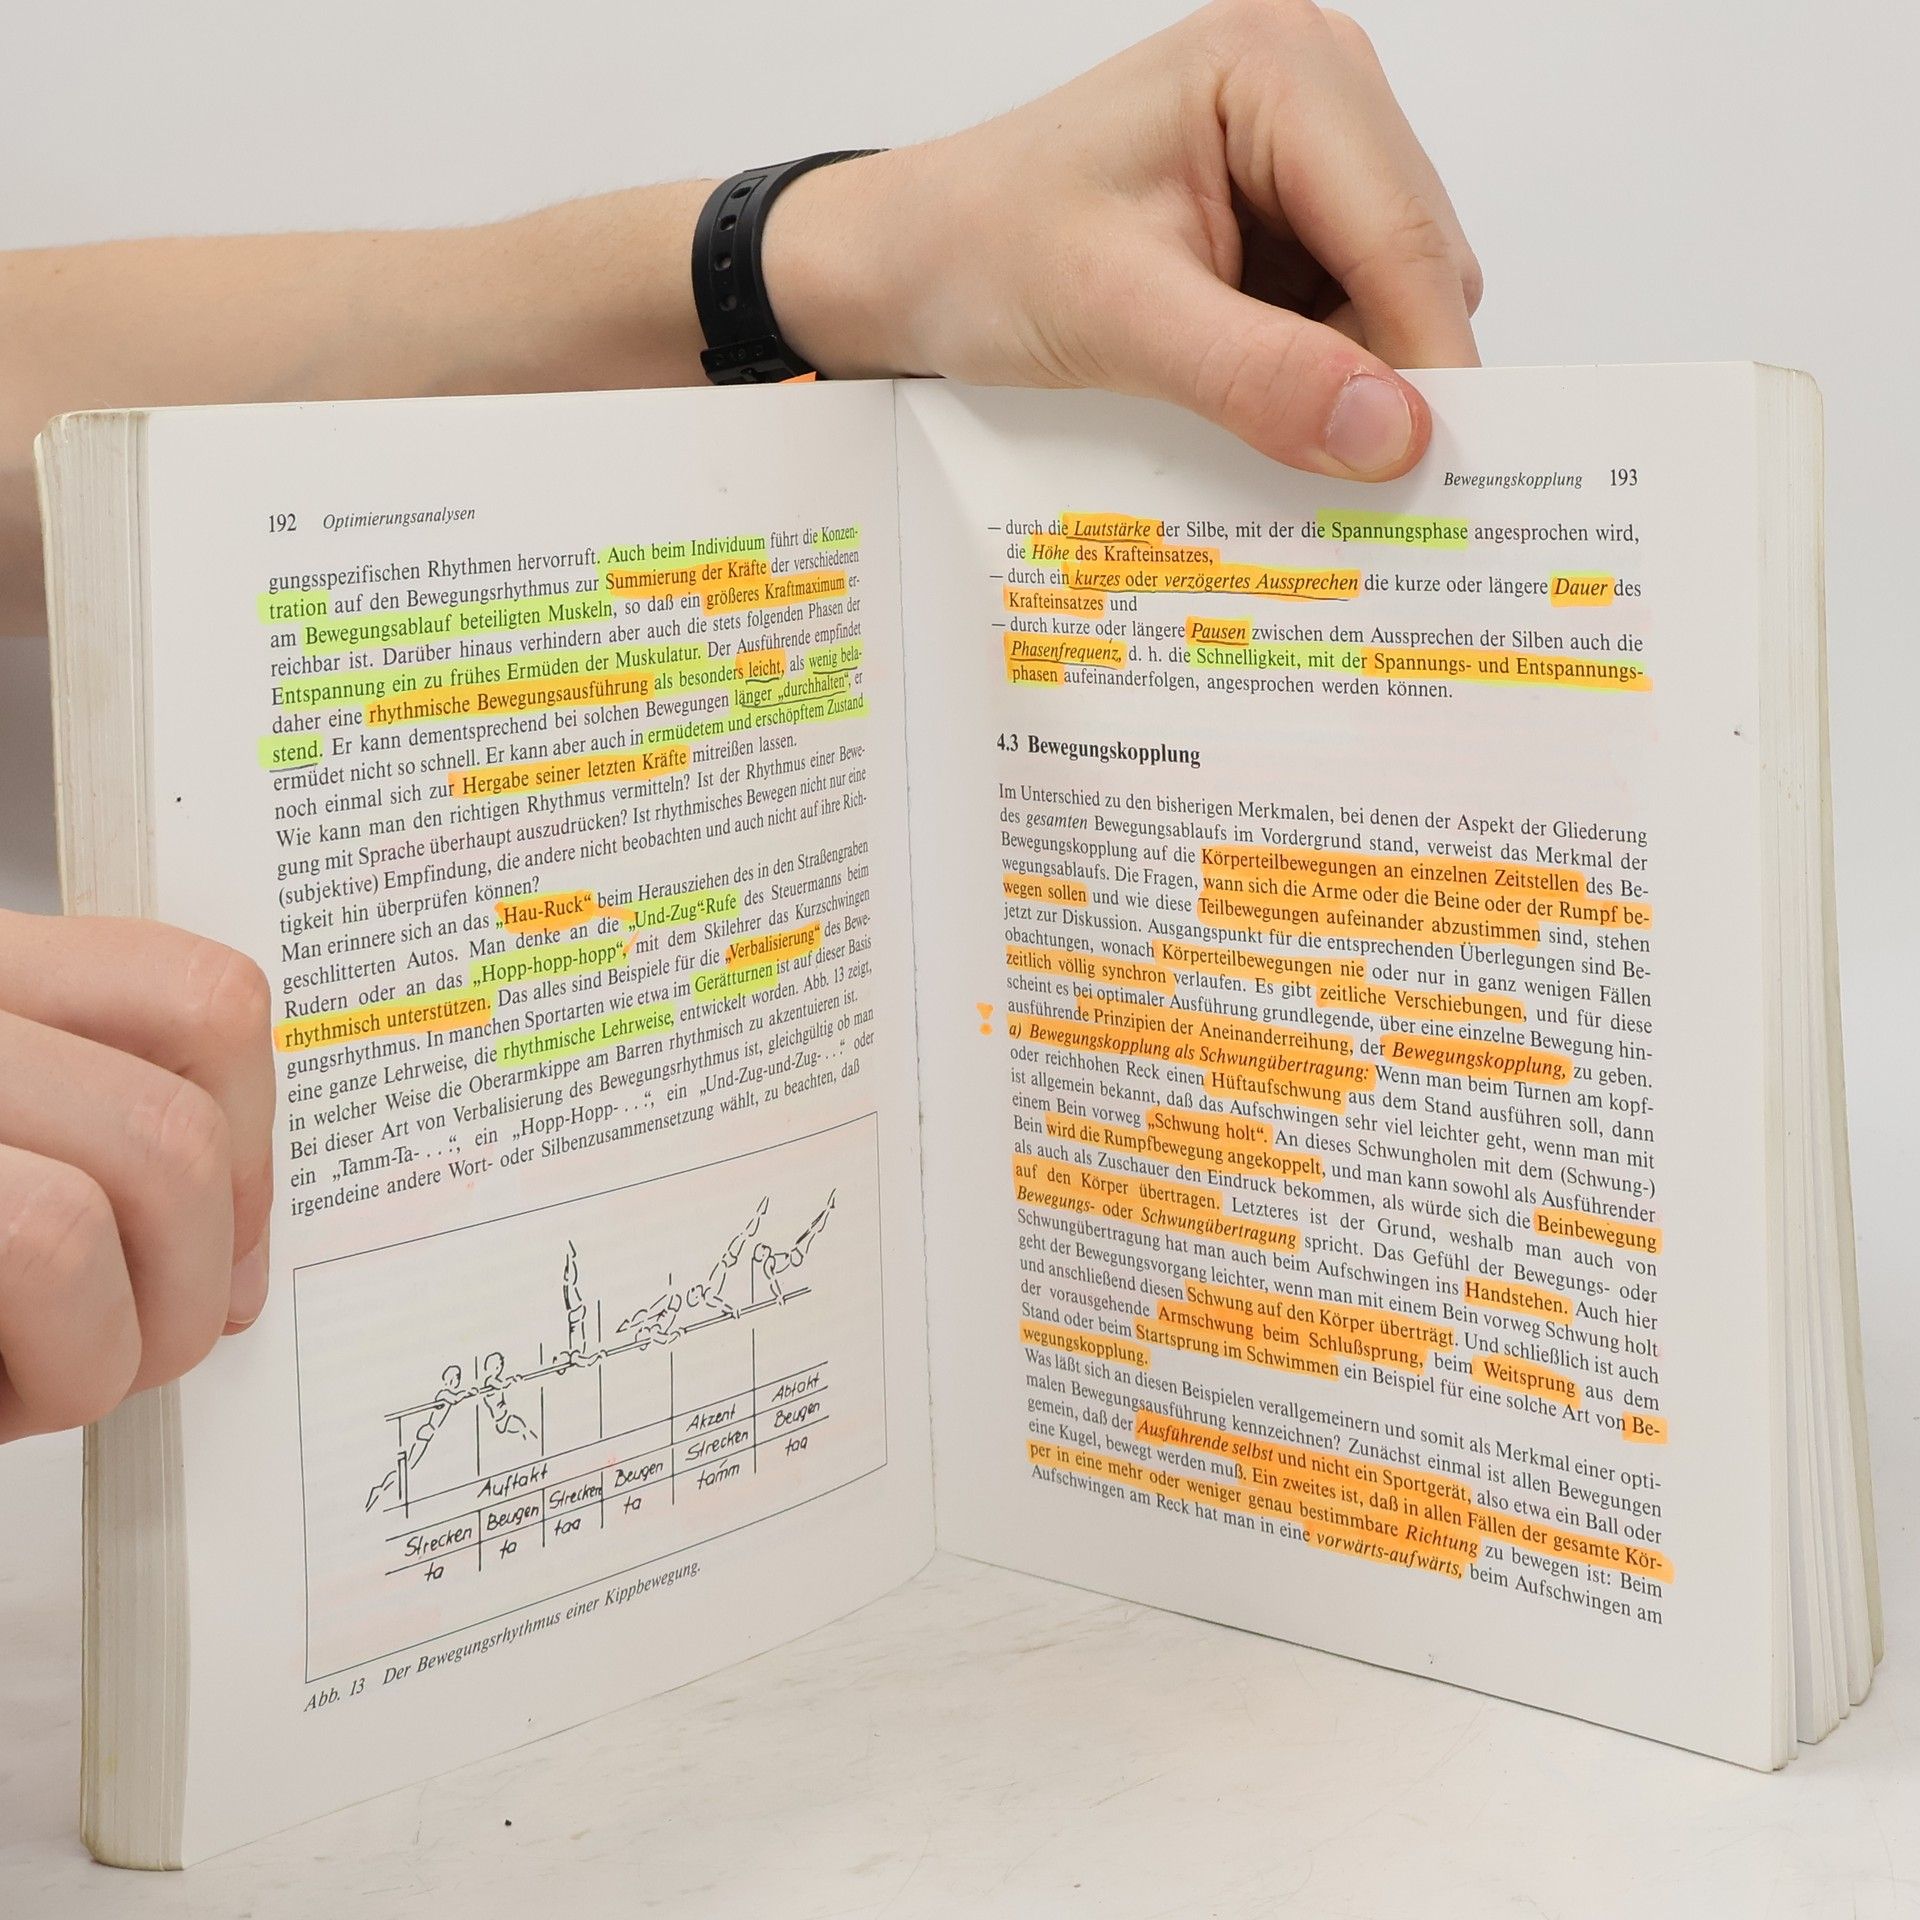 192 Optimierungsanalysen
gungsspezifischen Rhythmen hervorruft. Auch beim Individuum führt die Konzen-
tration auf den Bewegungsrhythmus zur Summierung der Kräfte der verschiedenen
am Bewegungsablauf beteiligten Muskeln, so daß ein größeres Kraftmaximum er-
reichbar ist. Darüber hinaus verhindern aber auch die stets folgenden Phasen der
Entspannung ein zu frühes Ermüden der Muskulatur. Der Ausführende empfindet
daher eine rhythmische Bewegungsausführung als besonders leicht, als wenig bela-
stend. Er kann dementsprechend bei solchen Bewegungen länger „durchhalten“, er
ermüdet nicht so schnell. Er kann aber auch in ermüdetem und erschöpftem Zustand
noch einmal sich zur Hergabe seiner letzten Kräfte mitreißen lassen.
Wie kann man den richtigen Rhythmus vermitteln? Ist der Rhythmus einer Bewe-
gung mit Sprache überhaupt auszudrücken? Ist rhythmisches Bewegen nicht nur eine
(subjektive) Empfindung, die andere nicht beobachten und auch nicht auf ihre Rich-
tigkeit hin überprüfen können?
Man erinnere sich an das „Hau-Ruck“ beim Herausziehen des in den Straßengraben
geschlitterten Autos. Man denke an die „Und-Zug“-Rufe des Steuermanns beim
Rudern oder an das „Hopp-hopp-hopp“, mit dem Skilehrer das Kurzschwingen
rhythmisch unterstützen. Das alles sind Beispiele für die „Verbalisierung“ des Bewe-
gungsrhythmus. In manchen Sportarten wie etwa im Gerätturnen ist auf dieser Basis
eine ganze Lehrweise, die rhythmische Lehrweise, entwickelt worden. Abb. 13 zeigt,
in welcher Weise die Oberarmkippe am Barren rhythmisch zu akzentuieren ist.
Bei dieser Art von Verbalisierung des Bewegungsrhythmus ist, gleichgültig ob man
ein „Tamm-Ta-. . .“, ein „Hopp-Hopp-. . .“, ein „Und-Zug-und-Zug-. . .“ oder
irgendeine andere Wort- oder Silbenzusammensetzung wählt, zu beachten, daß
Auftakt Akzent Abtakt
Strecken Beugen Strecken Beugen Strecken Beugen
ta ta taa ta tamm taa
Abb. 13 Der Bewegungsrhythmus einer Kippbewegung.
Bewegungskopplung 193
– durch die Lautstärke der Silbe, mit der die Spannungsphase angesprochen wird,
die Höhe des Krafteinsatzes,
– durch ein kurzes oder verzögertes Aussprechen die kurze oder längere Dauer des
Krafteinsatzes und
– durch kurze oder längere Pausen zwischen dem Aussprechen der Silben auch die
Phasenfrequenz, d. h. die Schnelligkeit, mit der Spannungs- und Entspannungs-
phasen aufeinanderfolgen, angesprochen werden können.
4.3 Bewegungskopplung
Im Unterschied zu den bisherigen Merkmalen, bei denen der Aspekt der Gliederung
des gesamten Bewegungsablaufs im Vordergrund stand, verweist das Merkmal der
Bewegungskopplung auf die Körperteilbewegungen an einzelnen Zeitstellen des Be-
wegungsablaufs. Die Fragen, wann sich die Arme oder die Beine oder der Rumpf be-
wegen sollen und wie diese Teilbewegungen aufeinander abzustimmen sind, stehen
jetzt zur Diskussion. Ausgangspunkt für die entsprechenden Überlegungen sind Be-
obachtungen, wonach Körperteilbewegungen nie oder nur in ganz wenigen Fällen
zeitlich völlig synchron verlaufen. Es gibt zeitliche Verschiebungen, und für diese
scheint es bei optimaler Ausführung grundlegende, über eine einzelne Bewegung hin-
ausführende Prinzipien der Aneinanderreihung, der Bewegungskopplung, zu geben.
a) Bewegungskopplung als Schwungübertragung: Wenn man beim Turnen am kopf-
oder reichhohen Reck einen Hüftaufschwung aus dem Stand ausführen soll, dann
ist allgemein bekannt, daß das Aufschwingen sehr viel leichter geht, wenn man mit
einem Bein vorweg „Schwung holt“. An dieses Schwungholen mit dem (Schwung-)
Bein wird die Rumpfbewegung angekoppelt, und man kann sowohl als Ausführender
als auch als Zuschauer den Eindruck bekommen, als würde sich die Beinbewegung
auf den Körper übertragen. Letzteres ist der Grund, weshalb man auch von
Bewegungs- oder Schwungübertragung spricht. Das Gefühl der Bewegungs- oder
Schwungübertragung hat man auch beim Aufschwingen ins Handstehen. Auch hier
geht der Bewegungsvorgang leichter, wenn man mit einem Bein vorweg Schwung holt
und anschließend diesen Schwung auf den Körper überträgt. Und schließlich ist auch
der vorausgehende Armschwung beim Schlußsprung, beim Weitsprung aus dem
Stand oder beim Startsprung im Schwimmen ein Beispiel für eine solche Art von Be-
wegungskopplung.
Was läßt sich an diesen Beispielen verallgemeinern und somit als Merkmal einer opti-
malen Bewegungsausführung kennzeichnen? Zunächst einmal ist allen Bewegungen
gemein, daß der Ausführende selbst und nicht ein Sportgerät, also etwa ein Ball oder
eine Kugel, bewegt werden muß. Ein zweites ist, daß in allen Fällen der gesamte Kör-
per in eine mehr oder weniger genau bestimmbare Richtung zu bewegen ist: Beim
Aufschwingen am Reck hat man in eine vorwärts-aufwärts, beim Aufschwingen am